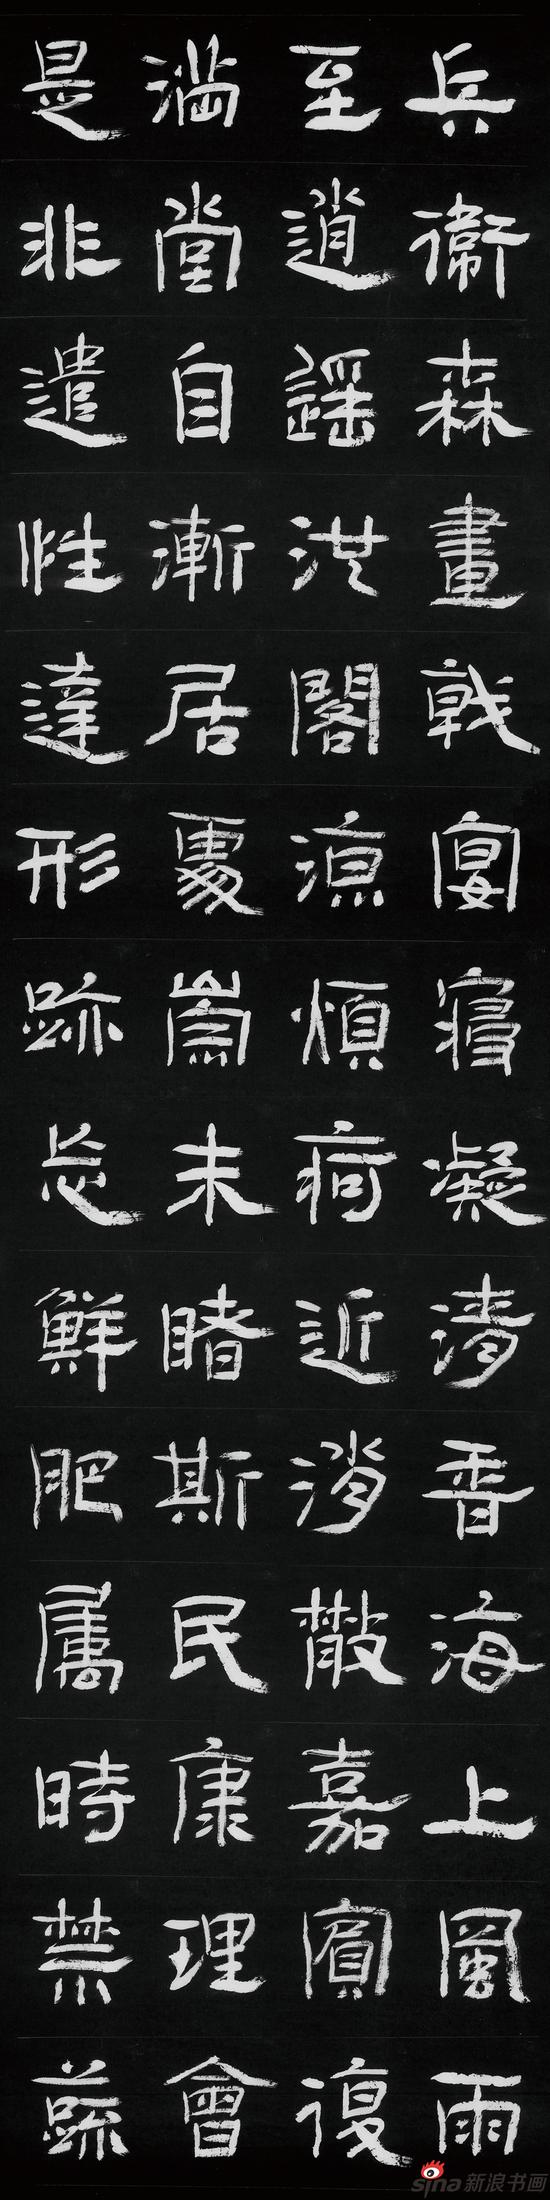 兵衛森畫戟宴寢凝清香海上風雨
至逍遙池閣涼煩疴近消散嘉賓復
滿堂自漸居處崇未睹斯民康理會
是非遣性達形跡忘鮮肥屬時禁蔬
sina新浪书画